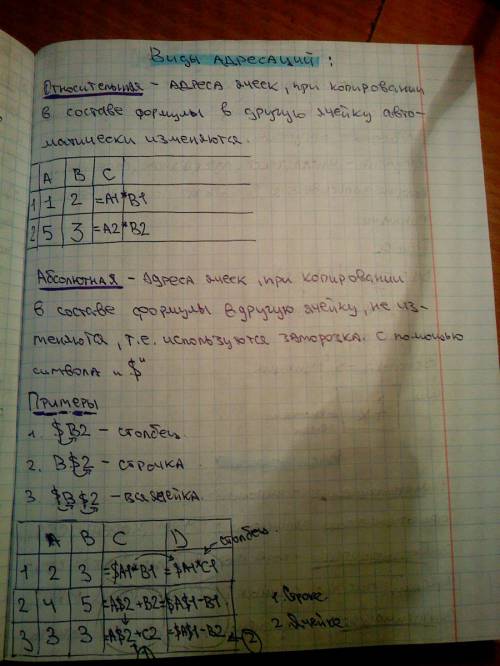 Виды адресаций:
Относительная – адреса ячеек, при копировании
в составе формулы в другую ячейку авто-
матически изменяются.
A B C
1 1 2 =A1*B1
2 5 3 =A2*B2
Абсолютная – адреса ячеек, при копировании
в составе формулы в другую ячейку, не из-
меняются, т.е. используются заморозка. С помощью
символа „$"
Примеры
1. $B2 – столбец
2. B$2 – строчка
3 $B$2 – вся ячейка.
A B C D столбец
1 2 3 =$A1*B1 =$A1*C1
2 4 5 =A$2+B2 =$A$1-B1 1. Строка
3 3 3 =A$2+C2 =$A$1-B2 2 2. Ячейка
1